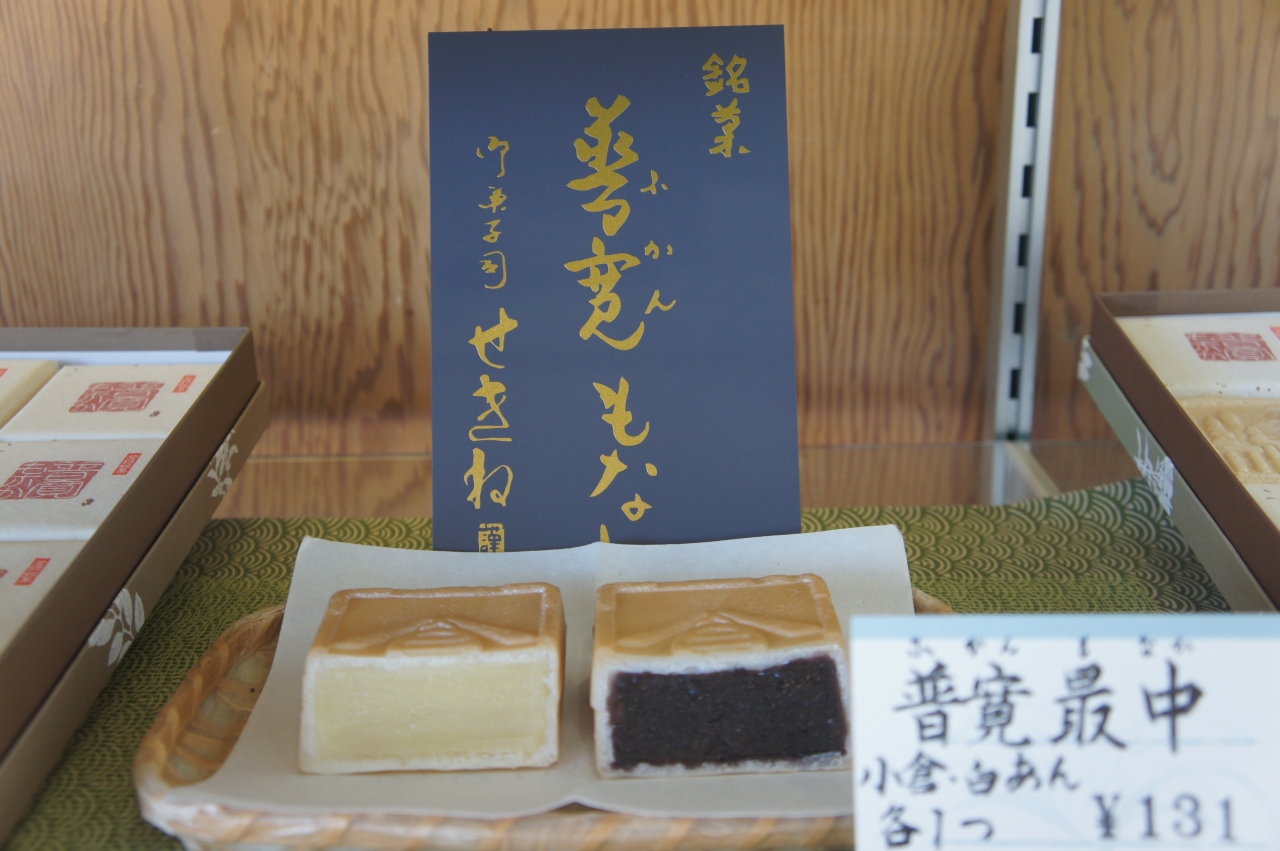 銘菓
普寛もなか
ふかん
御菓子司 せきね
ふかんもなか
普寛最中
小倉・白あん
各1つ ¥131